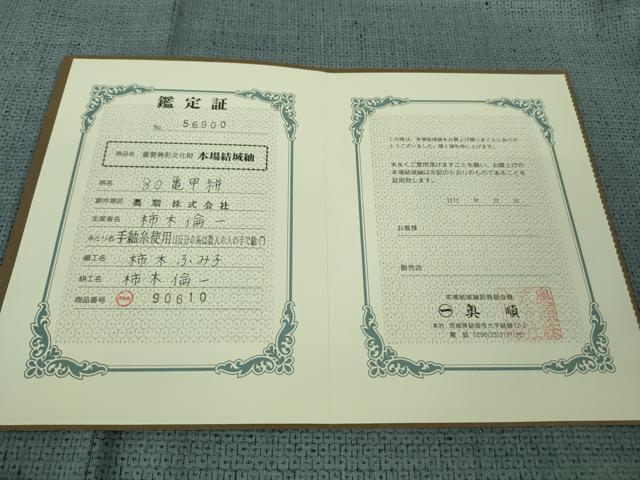 鑑定証
No. 56900
商品名 重要無形文化財 本場結城紬
柄名 80亀甲絣
製作 奥順株式会社
生産者名 柿木倫一
糸とり名 手紬糸使用
織工名 柿木ふみ子
絣工名 柿木倫一
商品番号 90610
この度は、本場結城紬をお買上げ賜りまことにありが
とうございました。厚く御礼申し上げます。
末永くご愛用頂けますことを願い、お買上げの
本場結城紬は左記のとおりのものであることを
証明致します。
年 月 日
お客様
販売店
本場結城紬卸商組合員
㊀ 奥順
本社 茨城県結城市大字結城12-2
電話 0296(33)31